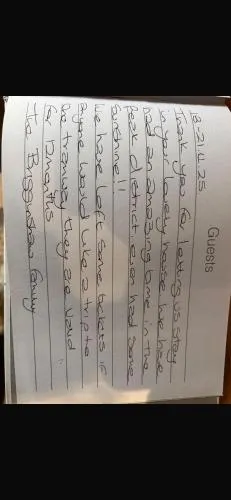 Guests
18-21.4.25
Thank you for letting us stay
in your lovely house we have
had an amazing time in the
Peak district even had some
Sunshine!!
We have left some tickets if
anyone would like a trip to
the tramway they are valid
for 12 months
The family